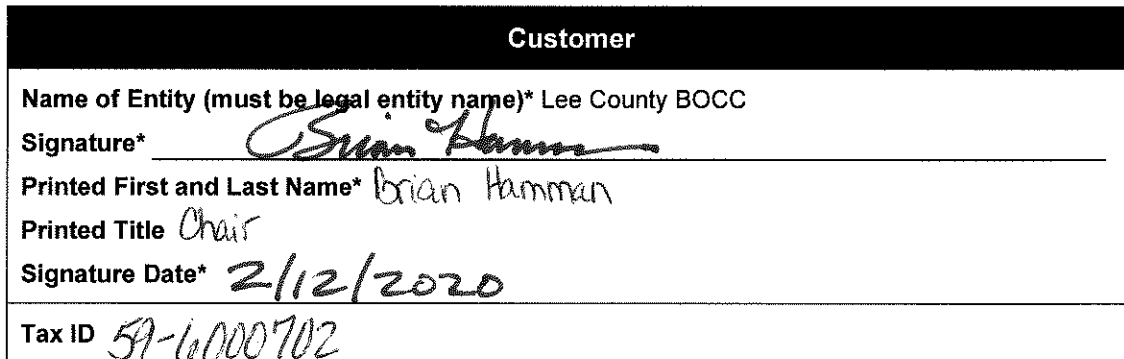 Customer
Name of Entity (must be legal entity name)* Lee County BOCC
Signature* Brian Hamman
Printed First and Last Name* Brian Hamman
Printed Title Chair
Signature Date* 2/12/2020
Tax ID 59-6000702